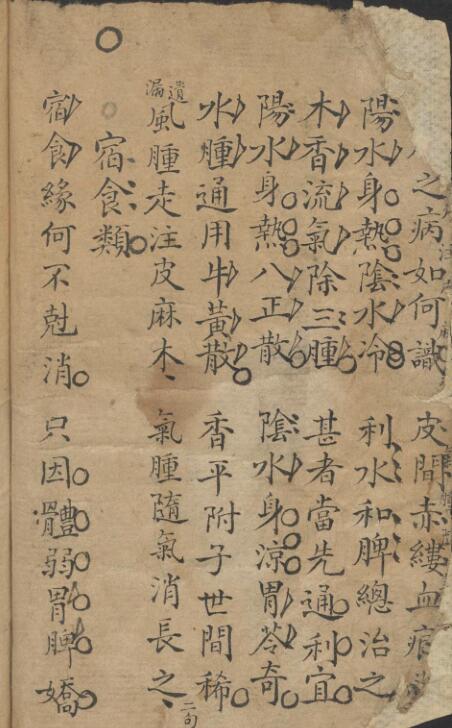 之病如何識 皮間赤縷血痕
陽水身熱陰水冷 利水和脾總治之
木香流氣除三腫 甚者當先通利宜
陽水身熱八正散 陰水身涼胃苓奇
水腫通用牛黃散 香平附子世間稀
遺漏
風腫走注皮麻木 氣腫隨氣消長之
二句
宿食類
宿食緣何不尅消 只因體弱胃脾嬌